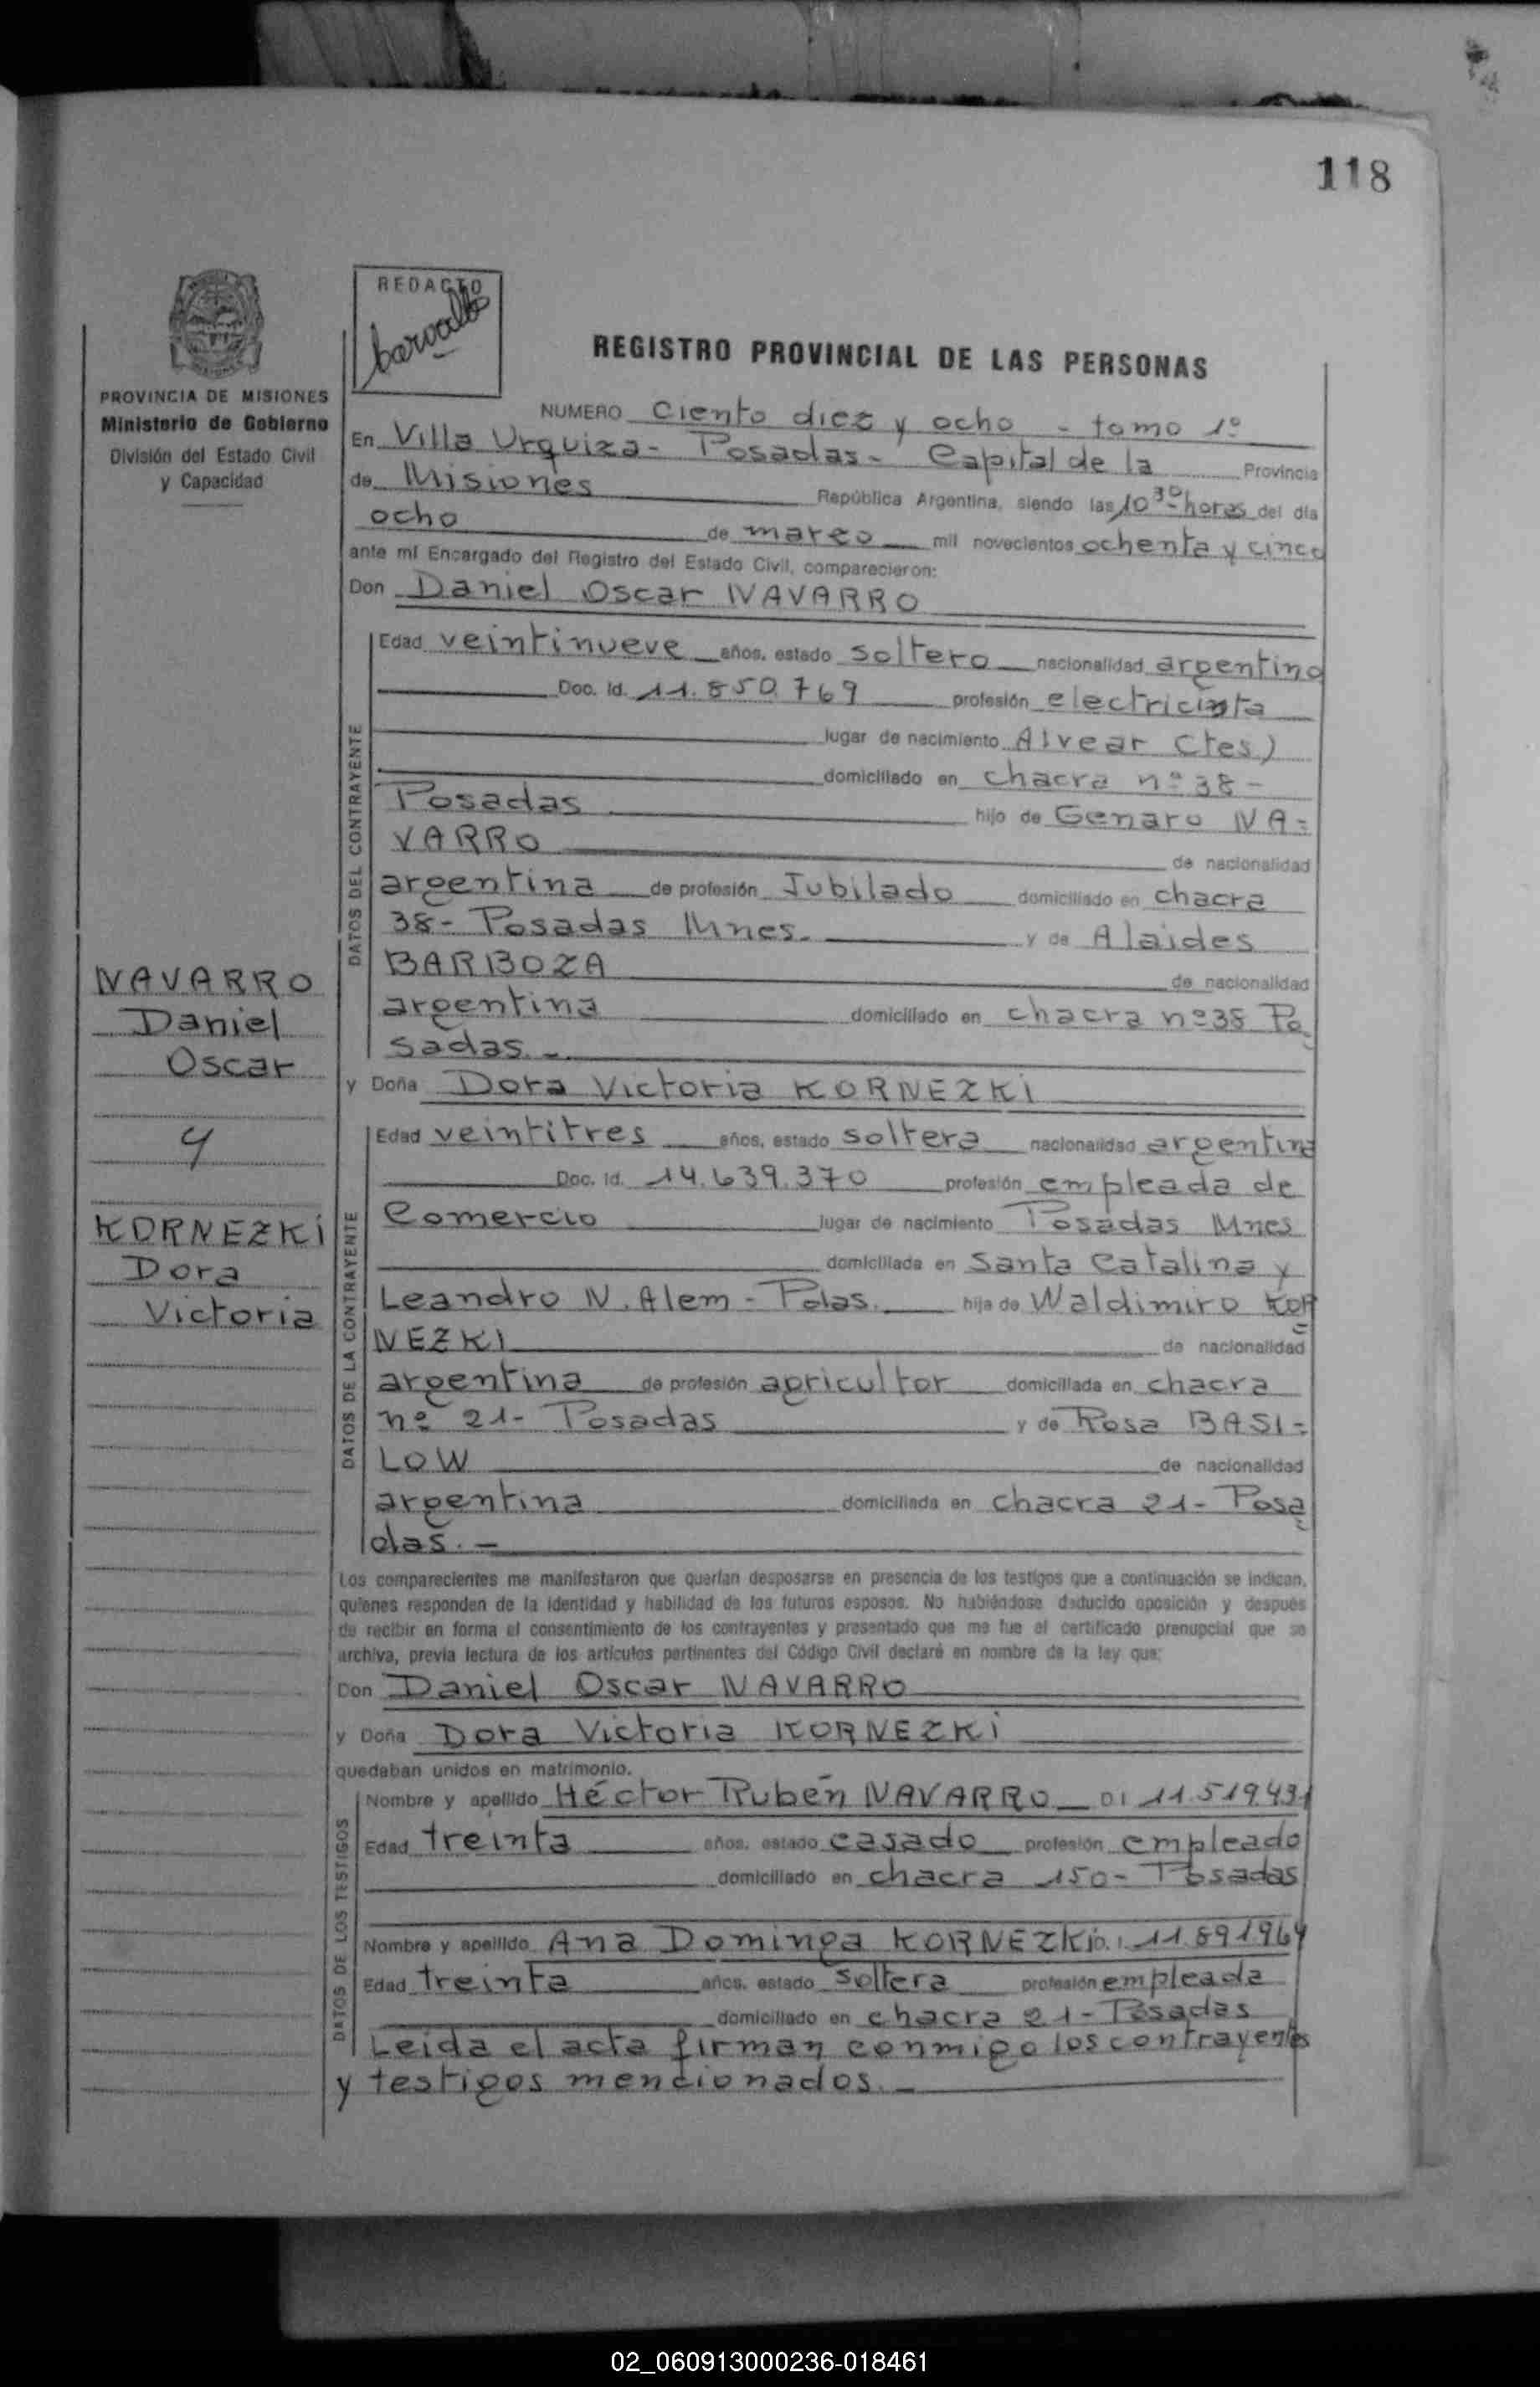 118
REDACTO
REGISTRO PROVINCIAL DE LAS PERSONAS
PROVINCIA DE MISIONES
Ministerio de Gobierno
División del Estado Civil
y Capacidad
NUMERO Ciento diez y ocho - tomo 1º
En Villa Urquiza - Posadas - Capital de la Provincia
de Misiones República Argentina, siendo las 10 30 horas del día
ocho de marzo mil novecientos ochenta y cinco
ante mí Encargado del Registro del Estado Civil, comparecieron:
Don Daniel Oscar NAVARRO
DATOS DEL CONTRAYENTE
Edad veintinueve años, estado soltero nacionalidad argentina
Doc. Id. 11.850.769 profesión electricista
lugar de nacimiento Alvear Ctes)
domiciliado en chacra nº 38 -
Posadas hijo de Genaro NA=
VARRO de nacionalidad
argentina de profesión Jubilado domiciliado en chacra
38 - Posadas Mnes. y de Alaides
BARBOZA de nacionalidad
argentina domiciliado en chacra nº 38 Po
sadas. -
NAVARRO
Daniel
Oscar
y
KORNEZKI
Dora
Victoria
y Doña Dora Victoria KORNEZKI
DATOS DE LA CONTRAYENTE
Edad veintitres años, estado soltera nacionalidad argentina
Doc. Id. 14.639.370 profesión empleada de
Comercio lugar de nacimiento Posadas Mnes
domiciliada en Santa Catalina y
Leandro N. Alem - Pdas. hija de Waldimiro KOR
NEZKI de nacionalidad
argentina de profesión agricultor domiciliada en chacra
nº 21 - Posadas y de Rosa BASI=
LOW de nacionalidad
argentina domiciliada en chacra 21 - Posa
das. -
Los comparecientes me manifestaron que querían desposarse en presencia de los testigos que a continuación se indican,
quienes responden de la identidad y habilidad de los futuros esposos. No habiéndose deducido oposición y después
de recibir en forma el consentimiento de los contrayentes y presentado que me fue el certificado prenupcial que se
archiva, previa lectura de los artículos pertinentes del Código Civil declaré en nombre de la ley que:
Don Daniel Oscar NAVARRO
y Doña Dora Victoria KORNEZKI
quedaban unidos en matrimonio.
DATOS DE LOS TESTIGOS
Nombre y apellido Héctor Rubén NAVARRO DI 11.519.431
Edad treinta años, estado casado profesión empleado
domiciliado en chacra 150 - Posadas
Nombre y apellido Ana Dominga KORNEZKI D.I 11.891964
Edad treinta años, estado soltera profesión empleada
domiciliado en chacra 21 - Posadas
Leida el acta firman conmigo los contrayentes
y testigos mencionados. -
02_060913000236-018461